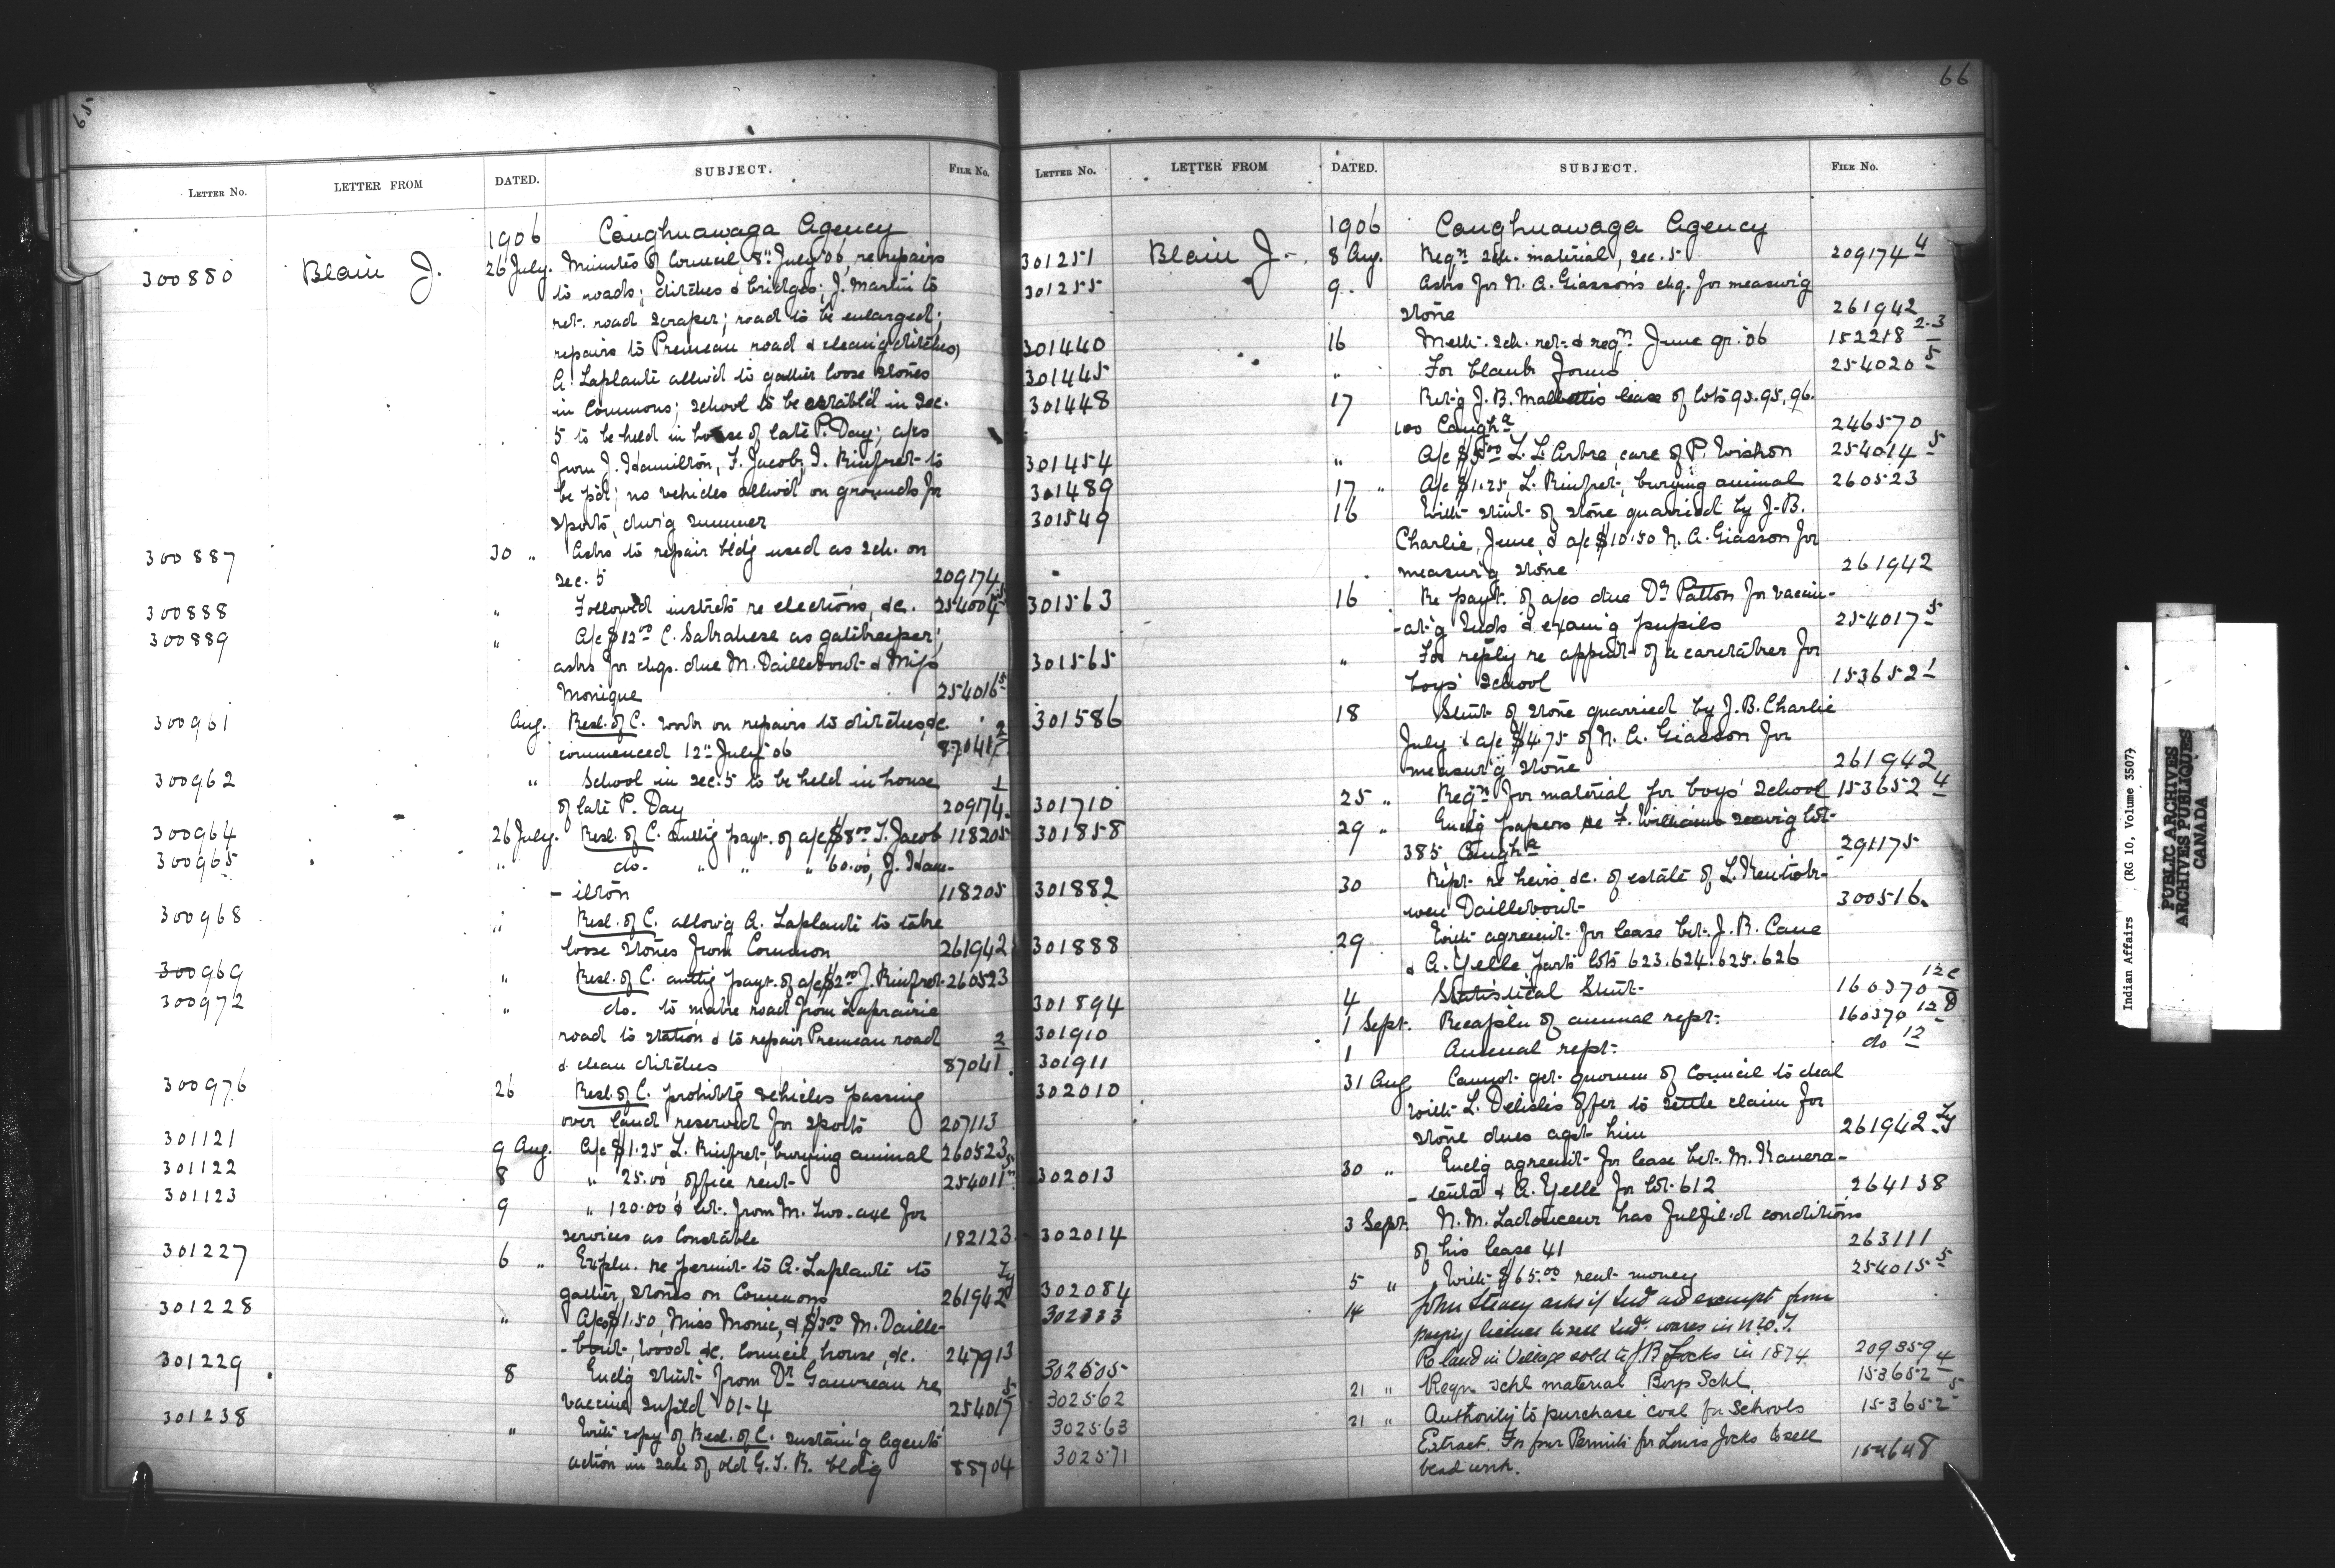 65
LETTER No. LETTER FROM DATED. SUBJECT. FILE No.
1906 Caughnawaga Agency
300880 Blain J. 26 July. Minutes of Council, 8th July '06, re repairs
to roads; ditches & bridges; J. Martin to
ret. road scraper; road to be enlarged;
repairs to Premeau road & cleang ditches,
A. Laplante allw'd to gather loose stones
in Commons; school to be estabd in Sec.
5 to be held in house of late P. Day; a/cs
from J. Hamilton, F. Jacob, J. Rinfret to
be p'd; no vehicles allw'd on grounds for
sports, dur'g summer
300887 30 " Asks to repair bld'g used as sch. on
sec. 5 209174
300888 " Followed instrcts re elections, &c. 254004 5
300889 " A/c $12.00 C. as gatekeeper;
asks for chqs. due M. Daillebout & Miss
Monique 254016 5
300961 Aug. Resl. of C. work on repairs to ditches, &c
commenced 12th July '06 87041 2
300962 " School in sec. 5 to be held in house
of late P. Day 209174 1
300964 26 July. Resl. of C. auth'g payt. of a/c $8.00 F. Jacob 118205
300965 " do. " " " 60.00, J. Ham-
-ilton 118205
300968 " Resl. of C. allow'g A. Laplante to take
loose stones from Common 261942
300969 " Resl. of C. auth'g payt. of a/c $2.00 J. Rinfret 260523
300972 " do. to make road from Laprairie
road to station & to repair Premeau road
& clean ditches 87041 2
300976 26 Resl. of C. prohibit'g vehicles passing
over land reserved for sports 207113
301121 9 Aug. A/c $1.25 L. Rinfret, burying animal 260523
301122 8 " 25.00, office rent 254011
301123 9 " 120.00 & let. from M. Two-axe for
services as Constable 182123
301227 6 " Expln. re permit to A. Laplante to
gather stones on Commons 261942
301228 " A/cs $1.50, Miss Monic, & $3.00 M. Daille-
-bout, wood &c. Council house, &c. 247913
301229 8 Encl'g stmt from Dr. Gauvreau re
vaccine supl'd '01-4 254017 5
301238 " With copy of Resl. of C. sustain'g Agents'
action in sale of old G.T.R. bldg 88704
66
LETTER No. LETTER FROM DATED. SUBJECT. FILE No.
1906 Caughnawaga Agency
301251 Blain J. 8 Aug. Reqn sch. material, sec. 5 209174 4
301255 9 Asks for N. A. Giasson's chq. for measur'g
stone 261942
301440 16 Meth. sch. ret. & reqn June qr. '06 152218 2-3
301445 " For blank forms 254020 5
301448 17 Ret'g J. B. lease of lots 93. 95. 96.
100 Caugha 246570
301454 " A/c $5.00 L. L. Arbre, care of P. 254014 5
301489 17 " A/c $1.25, L. Rinfret, burying animal 260523
301549 16 With stmt of stone quarried by J. B.
Charlie, June, & a/c $10.50 N. A. Giasson for
measur'g stone 261942
301563 16 Re payt. of a/cs due Dr Patton for vaccin-
-at'g Inds & exam'g pupils 254017 5
301565 " For reply re appmt of a caretaker for
boys' school 153652 1
301586 18 Stmt of stone quarried by J. B. Charlie
July & a/c $4.75 of N. A. Giasson for
measur'g stone 261942
301710 25 " Reqn for material for boys' school 153652 4
301858 29 " Encl'g papers re F. Williams lot
385, Caugha 291175
301882 30 Rept. re heirs &c. of estate of L.
Daillebout 300516
301888 29 With agreemt for lease bet. J. B. Cane
& A. Yelle, parts lots 623. 624. 625. 626
301894 4 Statistical Stmt. 160370 12c
301910 1 Sept. Recapln of annual rept. 160370 12B
301911 1 Annual rept. do 12
302010 31 Aug Cannot get quorum of Council to deal
with L. Delisle's offer to settle claim for
stone dues agst him 261942
302013 30 " Encl'g agreemt for lease bet. M.
& A. Yelle for lot 612 264138
302014 3 Sept. N. M. Ladouceur has fulfil'd conditions
of his lease 41 263111
302084 5 " With $65.00 rent money 254015 5
302333 14 John Stacey asks if Inds are exempt from
paying license to sell Inds wares in N.W.T.
302505 Re land in Village sold to J B Jocks in 1874 209359
302562 21 " Reqn schl material Boys Schl. 153652 4
302563 21 " Authority to purchase coal for Schools 153652 5
302571 Extract. For four Permits for Louis Jocks to sell
bead work. 154648
Indian Affairs (RG 10, Volume 3507)
PUBLIC ARCHIVES
ARCHIVES PUBLIQUES
CANADA